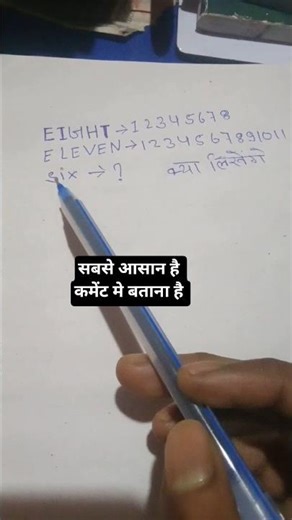 EIGHT→12345678
ELEVEN→1234567891011
six → ? क्या लिखेंगे
सबसे आसान है
कमेंट मे बताना है